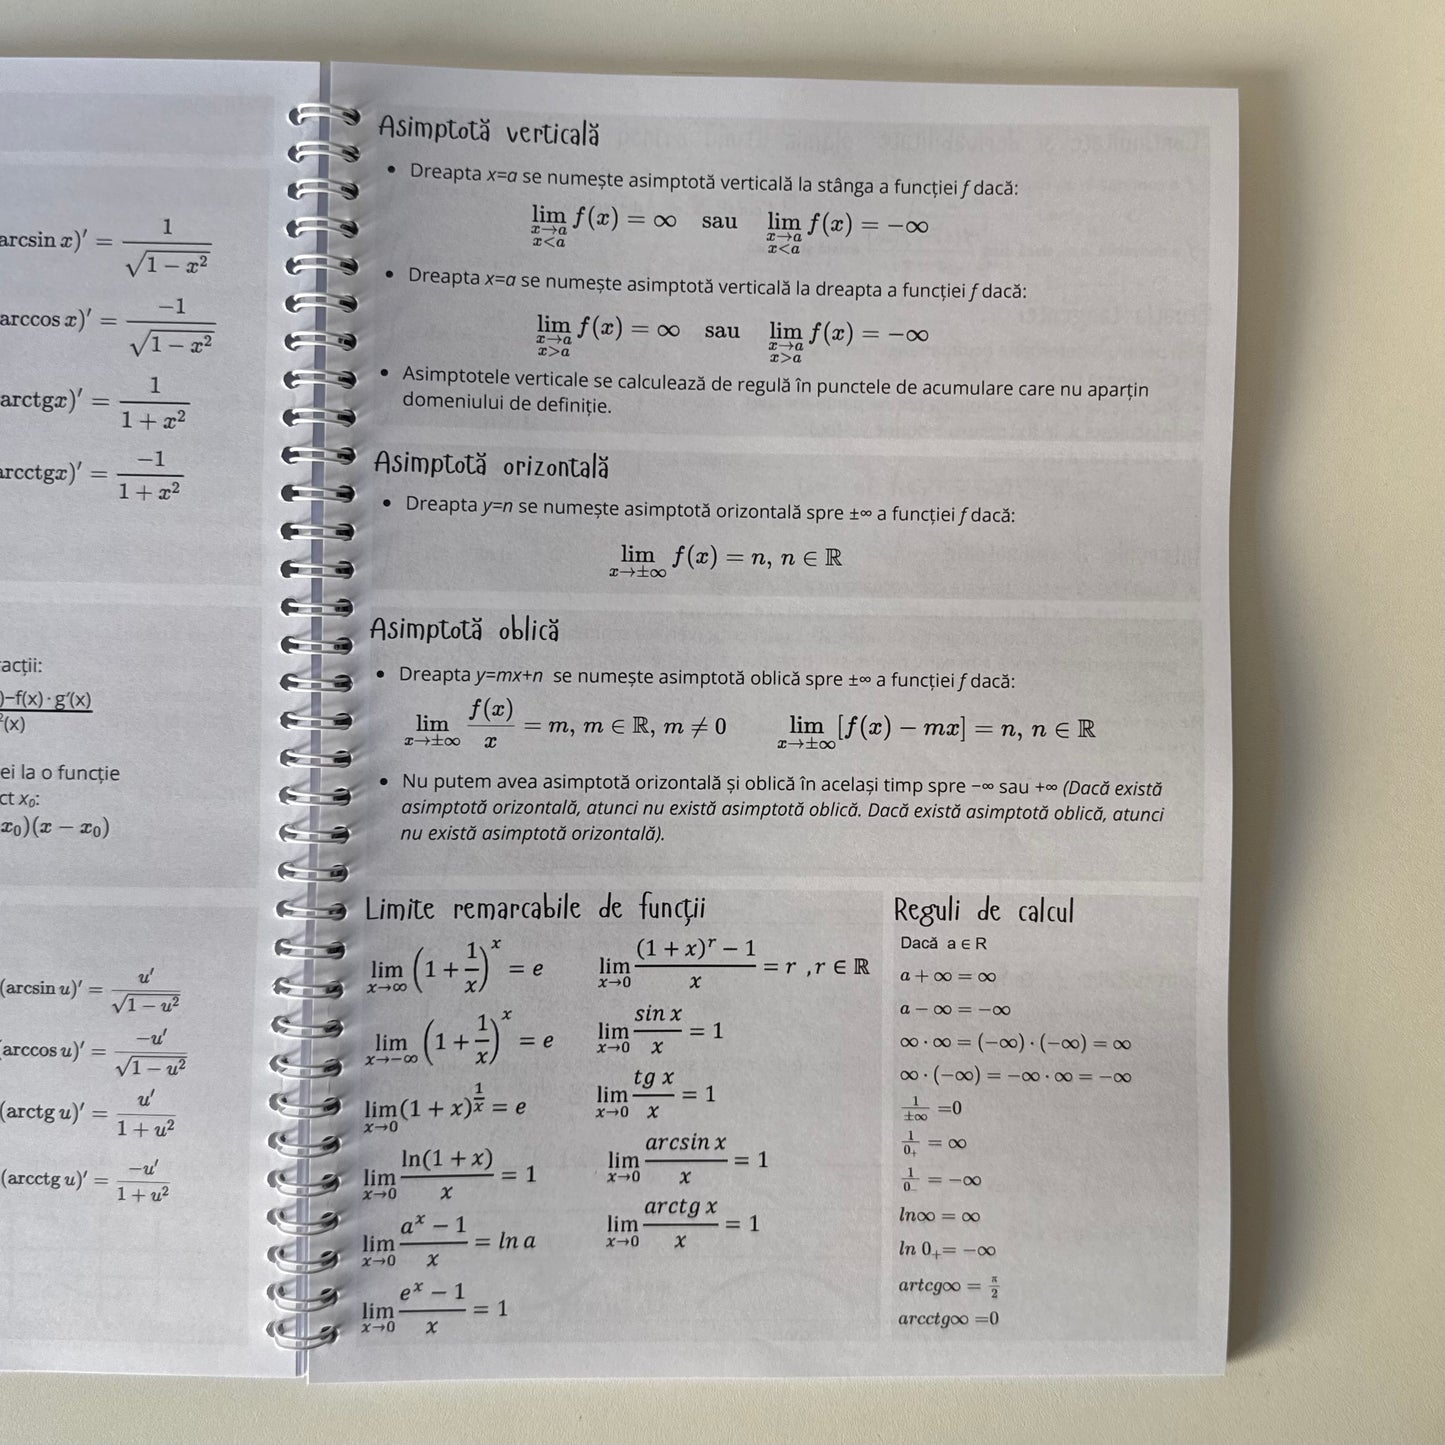 arcsin x)′ = 1/√(1 − x²)
arccos x)′ = −1/√(1 − x²)
arctgx)′ = 1/(1 + x²)
arcctgx)′ = −1/(1 + x²)
acții:
)−f(x)·g′(x)
²(x)
ei la o funcție
ct x₀:
x₀)(x − x₀)
(arcsin u)′ = u′/√(1 − u²)
(arccos u)′ = −u′/√(1 − u²)
(arctg u)′ = u′/(1 + u²)
(arcctg u)′ = −u′/(1 + u²)
Asimptotă verticală
• Dreapta x=a se numește asimptotă verticală la stânga a funcției f dacă:
lim x→a x<a f(x) = ∞ sau lim x→a x<a f(x) = −∞
• Dreapta x=a se numește asimptotă verticală la dreapta a funcției f dacă:
lim x→a x>a f(x) = ∞ sau lim x→a x>a f(x) = −∞
• Asimptotele verticale se calculează de regulă în punctele de acumulare care nu aparțin
domeniului de definiție.
Asimptotă orizontală
• Dreapta y=n se numește asimptotă orizontală spre ±∞ a funcției f dacă:
lim x→±∞ f(x) = n, n ∈ ℝ
Asimptotă oblică
• Dreapta y=mx+n se numește asimptotă oblică spre ±∞ a funcției f dacă:
lim x→±∞ f(x)/x = m, m ∈ ℝ, m ≠ 0 lim x→±∞ [f(x) − mx] = n, n ∈ ℝ
• Nu putem avea asimptotă orizontală și oblică în același timp spre −∞ sau +∞ (Dacă există
asimptotă orizontală, atunci nu există asimptotă oblică. Dacă există asimptotă oblică, atunci
nu există asimptotă orizontală).
Limite remarcabile de funcții
lim x→∞ (1 + 1/x)^x = e
lim x→−∞ (1 + 1/x)^x = e
lim x→0 (1 + x)^(1/x) = e
lim x→0 ln(1 + x)/x = 1
lim x→0 (a^x − 1)/x = ln a
lim x→0 (e^x − 1)/x = 1
lim x→0 ((1 + x)^r − 1)/x = r , r ∈ ℝ
lim x→0 sin x/x = 1
lim x→0 tg x/x = 1
lim x→0 arcsin x/x = 1
lim x→0 arctg x/x = 1
Reguli de calcul
Dacă a ∈ R
a + ∞ = ∞
a − ∞ = −∞
∞ · ∞ = (−∞) · (−∞) = ∞
∞ · (−∞) = −∞ · ∞ = −∞
1/±∞ =0
1/0₊ = ∞
1/0₋ = −∞
ln∞ = ∞
ln 0₊= −∞
artcg∞ = π/2
arcctg∞ =0